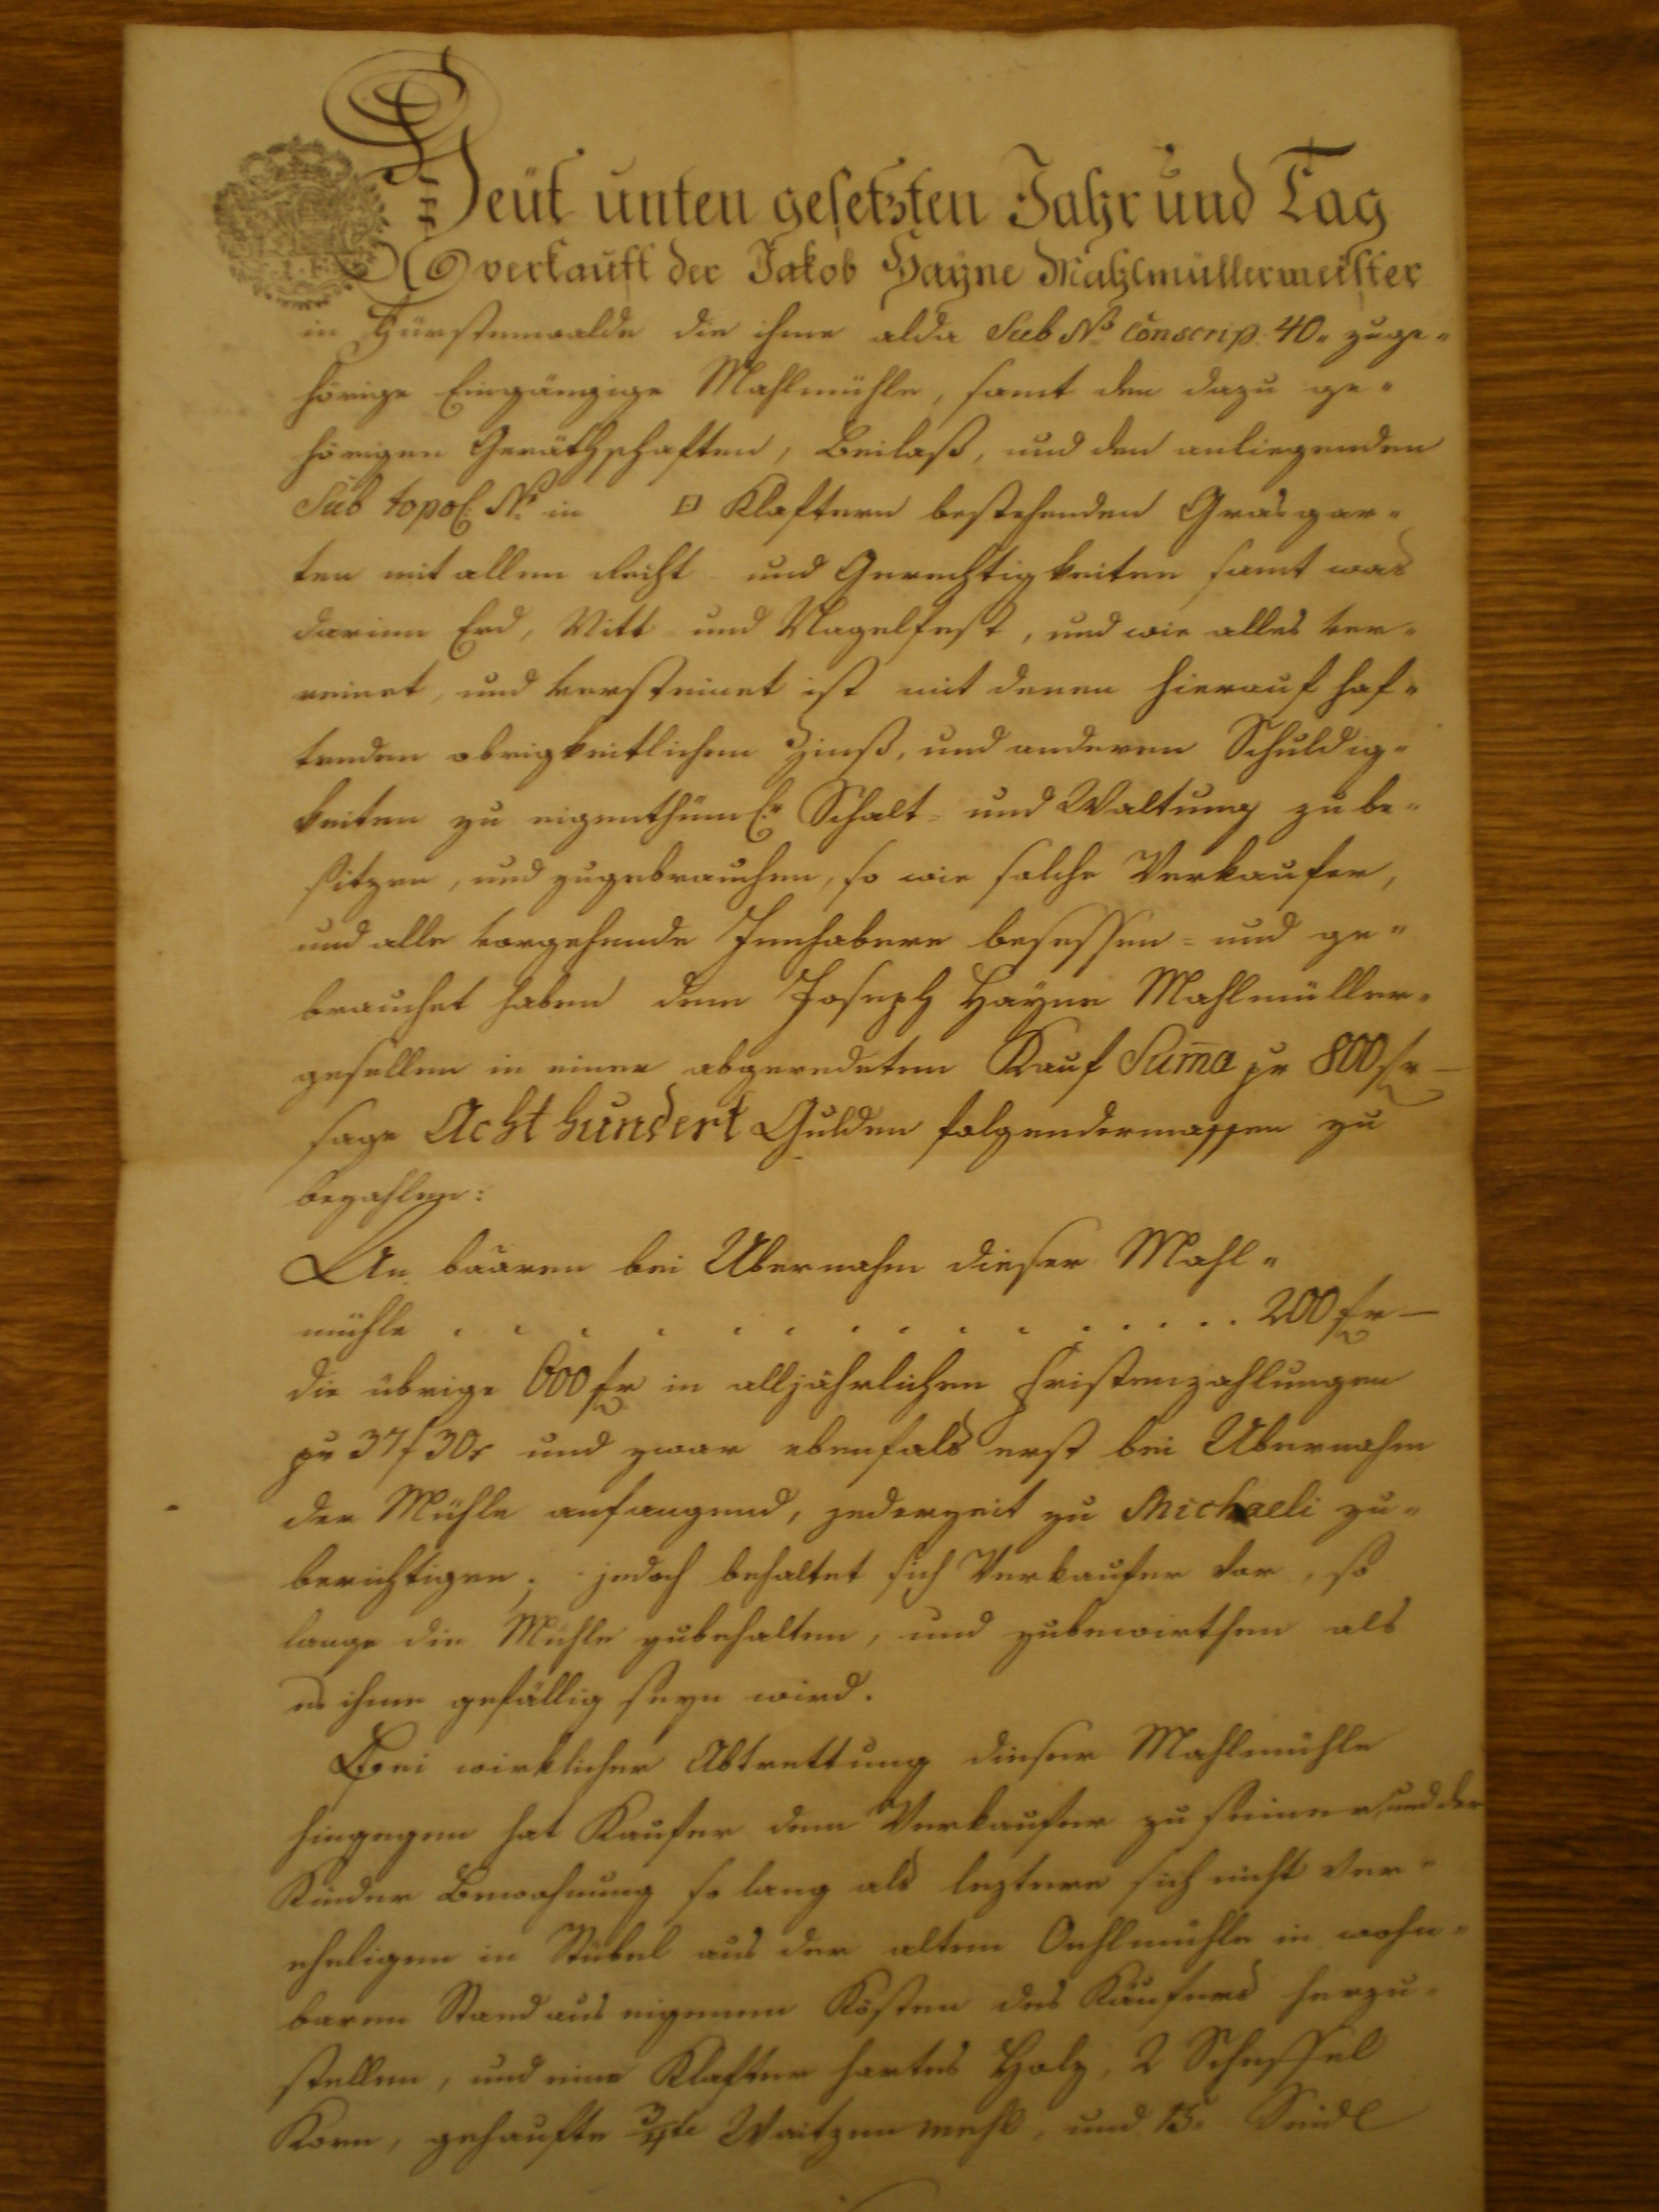 Heüt unten gesetzten Jahr und Tag
verkauft der Jakob Hayne Mahlmüllermeister
in Fürstenwalde die ihme alda Sub No Conscrip. 40. zuge-
hörige Eingängige Mahlmühle, samt den dazu ge-
hörigen Geräthschaften, Beilaß, und den anliegenden
Sub topol. No in □ Klaftern bestehenden Grasgar-
ten mit allen Recht und Gerechtigkeiten samt was
darinn Erd, Nitt- und Nagelfest, und wie alles ver-
reinet, und versteinet ist mit denen hierauf haf-
tenden obrigkeitlichen Zinß, und anderen Schuldig-
keiten zu eigenthüml. Schalt- und Waltung zu be-
sitzen, und zugebrauchen, so wie solche Verkaufer,
und alle vorgehende Innhabere besessen- und ge-
brauchet haben dem Joseph Hayne Mahlmüller-
gesellen in einer abgeredeten Kauf Suma pr 800 fr
sage Acht hundert Gulden folgendermassen zu
bezahlen:
An baaren bei Ubernahm dieser Mahl-
mühle . . . . . . . . . . . . . . . . 200 fr —
die übrige 600 fr in alljährlichen Fristenzahlungen
pr 37f 30x und zwar ebenfals erst bei Ubernahm
der Mühle anfangend, jederzeit zu Michaeli zu-
berichtigen; jedoch behaltet sich Verkaufer vor, so
lange die Mühle zubehalten, und zubewirthen als
es ihme gefällig seyn wird.
Bei wirklicher Abtrettung dieser Mahlmühle
hingegen hat Kaufer dem Verkaufer zu seiner, und der
Kinder Bewohnung so lang als leztere sich nicht ver-
eheligen in Stübel aus der alten Oehlmühle in wohn-
baren Stand aus eigenen Kösten des Käufers herzu-
stellen, und eine Klafter hartes Holz, 2 Scheffel
Korn, gehaufte 3/4te Waitzen mehl, und 15. Seidl